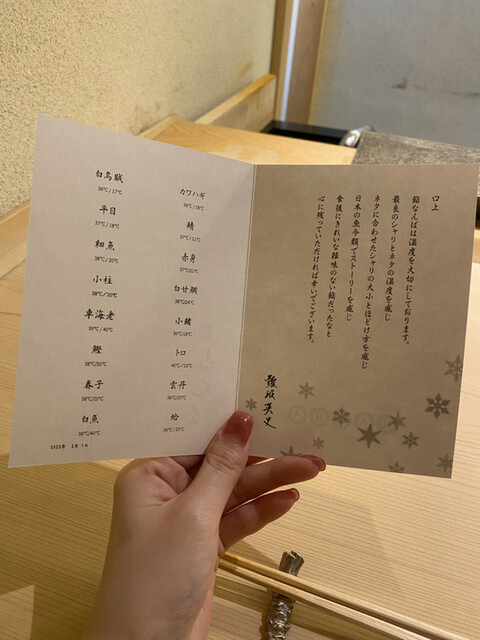 白烏賊
36℃/17℃
平目
37℃/18℃
細魚
38℃/20℃
小柱
38℃/20℃
車海老
39℃/40℃
鰹
38℃/20℃
春子
38℃/20℃
白魚
38℃/40℃
カワハギ
38℃/18℃
鯖
37℃/21℃
赤身
37℃/21℃
白甘鯛
38℃/24℃
小鰭
36℃/18℃
トロ
40℃/25℃
雲丹
36℃/20℃
蛤
38℃/20℃
口上
鮨なんばは温度を大切にしております。
最良のシャリとネタの温度を感じ
ネタに合わせたシャリの大小とほどけ方を感じ
日本の魚介類でストーリーを感じ
食後にきれいな雑味のない鮨だったなと
心に残っていただければ幸いでございます。
難波英史